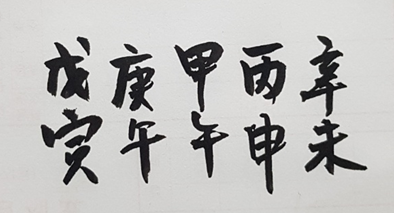 辛未
丙申
甲午
庚午
戊寅